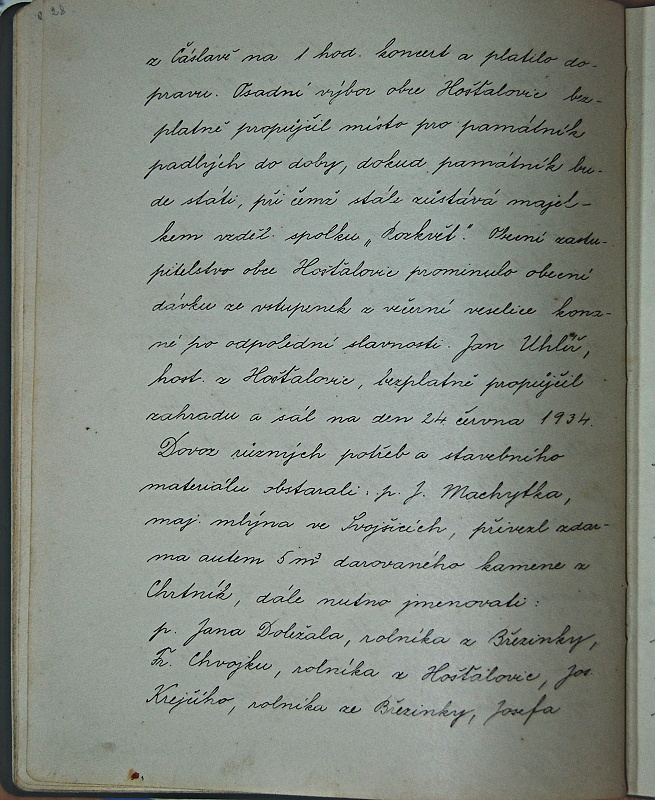 28
z Čáslavě na 1 hod. koncert a platilo do-
pravu. Osadní výbor obce Hošťalovic bez-
platně propůjčil místo pro památník
padlých do doby, dokud památník bu-
de státi, při čemž stále zůstává majet-
kem vzděl. spolku „Rozkvět“. Obecní zastu-
pitelstvo obce Hošťalovic prominulo obecní
dávku ze vstupenek z večerní veselice koná-
né po odpolední slavnosti. Jan Uhlíř,
host. z Hošťalovic, bezplatně propůjčil
zahradu a sál na den 24 června 1934.
Dovoz různých potřeb a stavebního
materiálu obstarali: p. J. Machytka,
maj. mlýna ve Svojšicích, přivezl zdar-
ma autem 5 m³ darovaného kamene z
Chrtník, dále nutno jmenovati:
p. Jana Doležala, rolníka z Březinky,
Fr. Chvojku, rolníka z Hošťalovic, Jos.
Krejčího, rolníka ze Březinky, Josefa